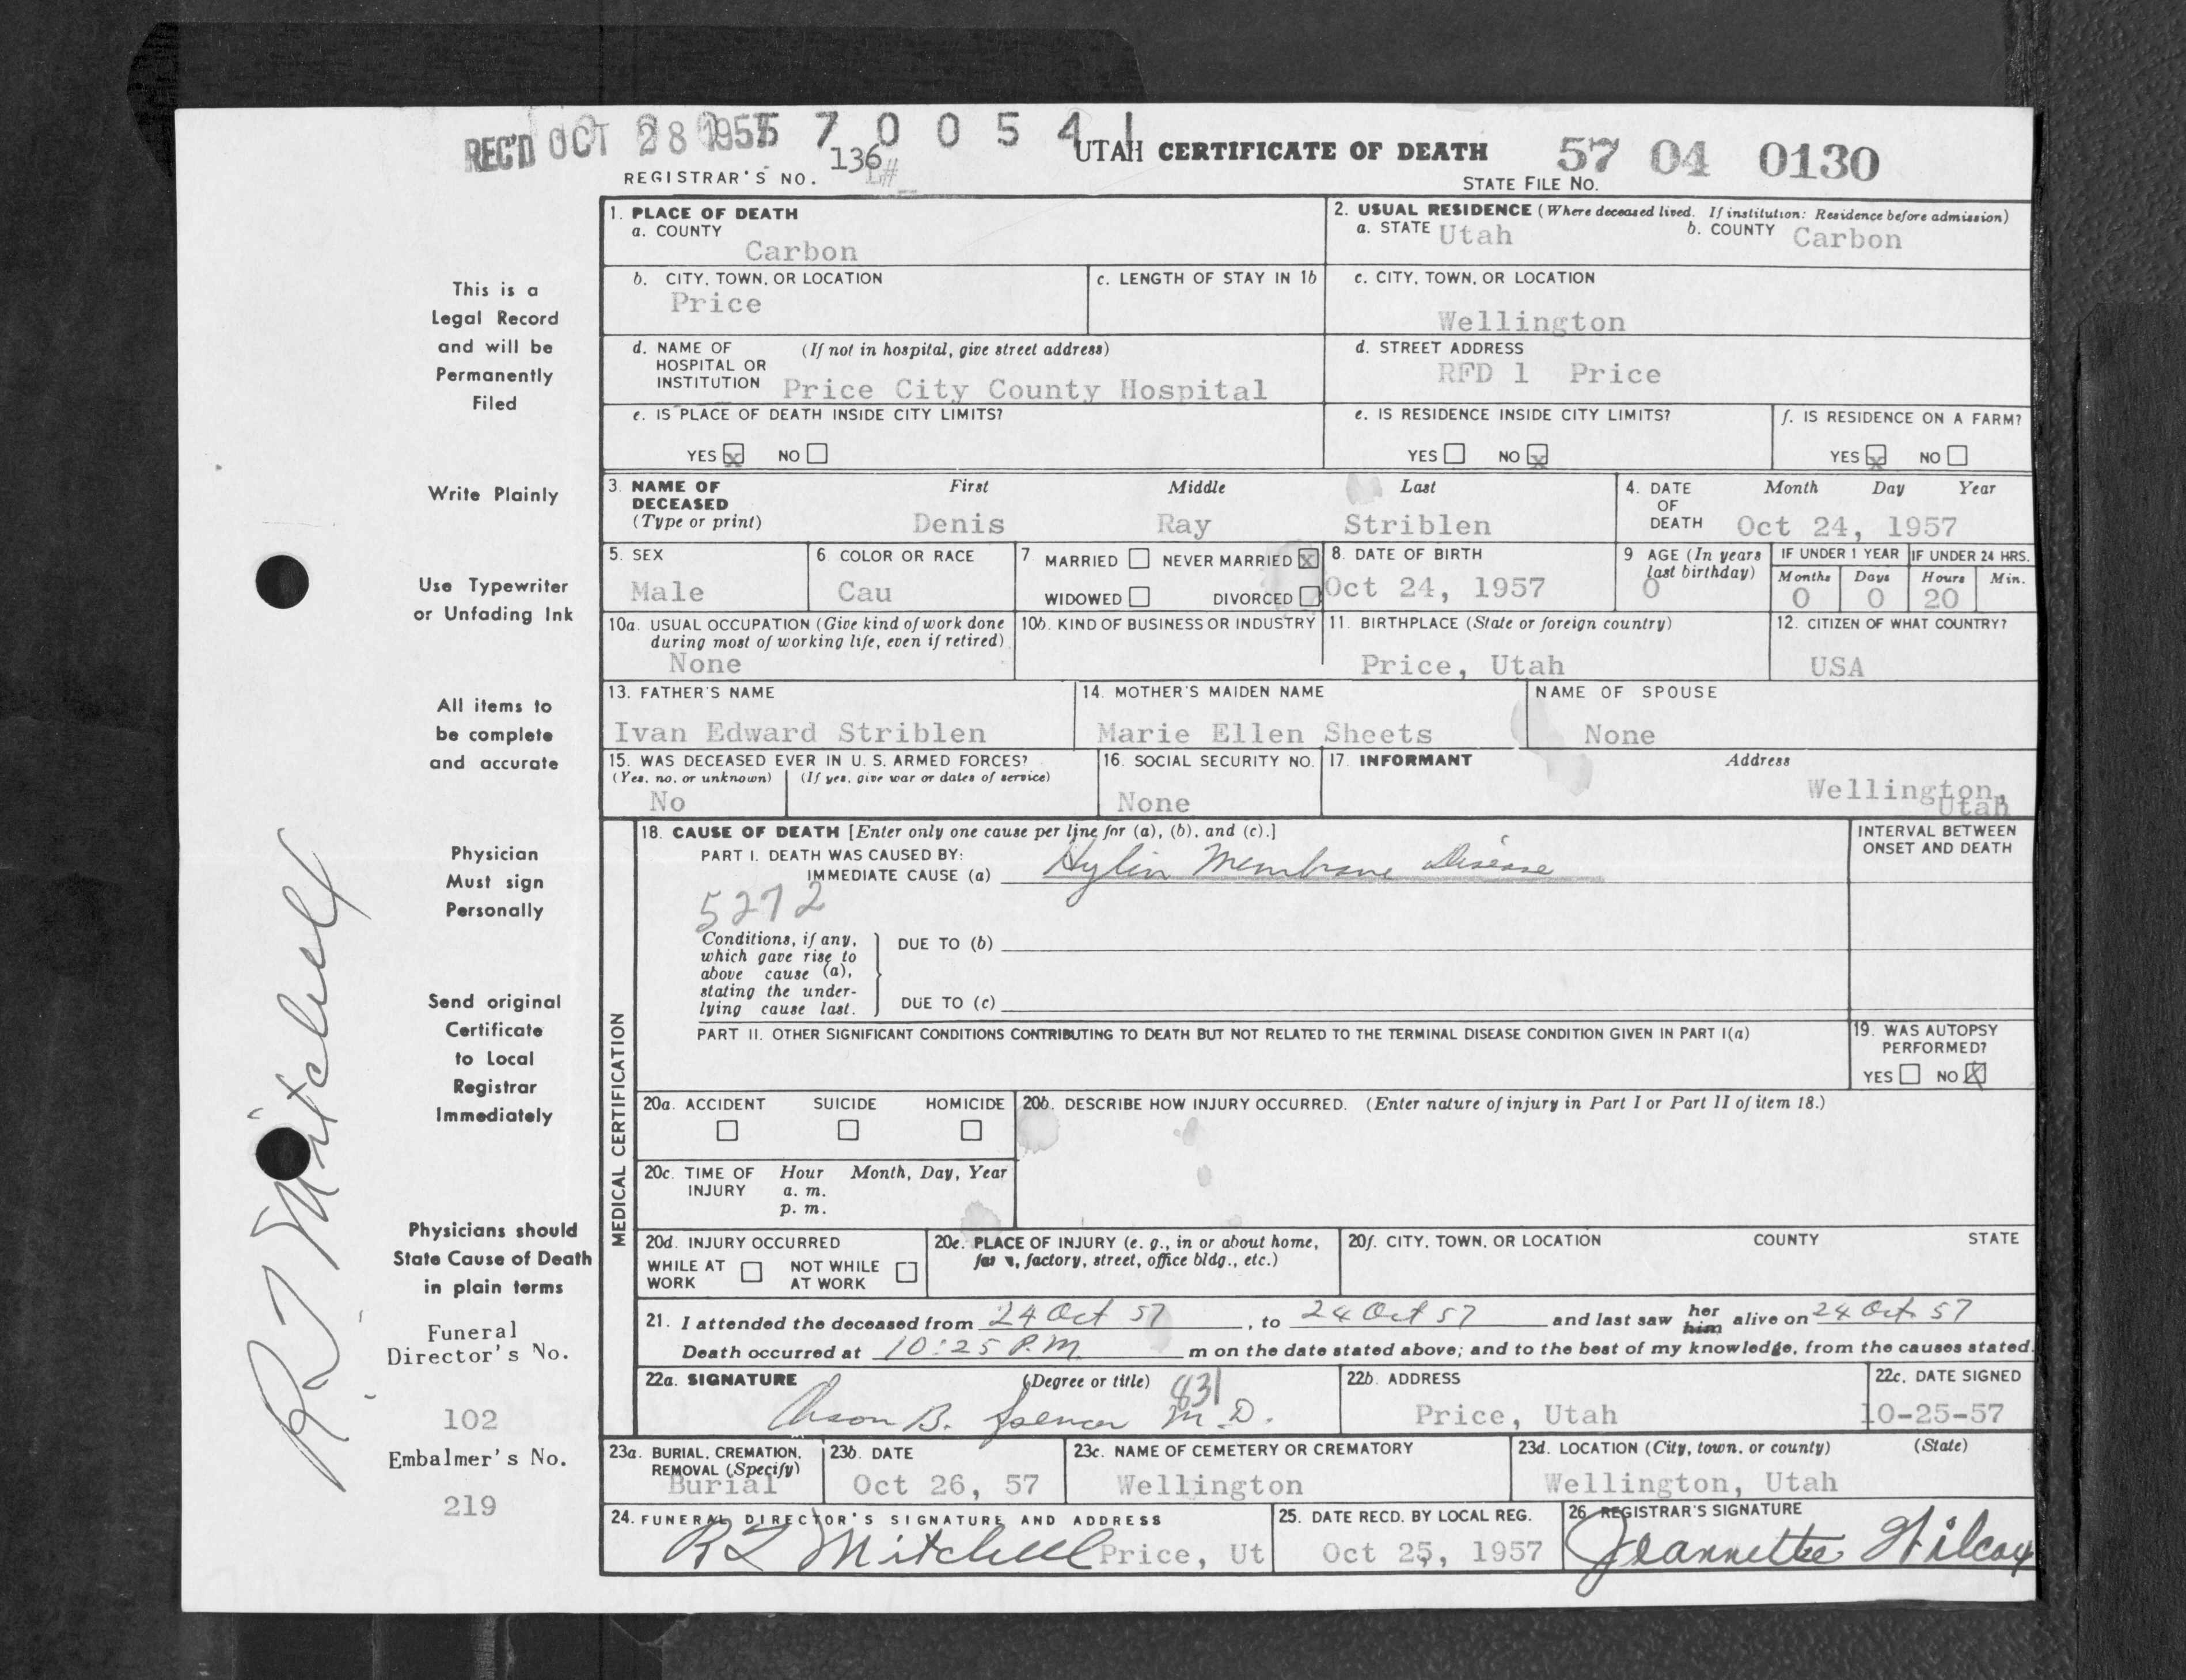 REC'D OCT 28 1957 5 7 0 0 5 4 1 UTAH CERTIFICATE OF DEATH 57 04 0130
REGISTRAR'S NO. 136 STATE FILE NO.
This is a
Legal Record
and will be
Permanently
Filed
Write Plainly
Use Typewriter
or Unfading Ink
All items to
be complete
and accurate
Physician
Must sign
Personally
Send original
Certificate
to Local
Registrar
Immediately
Physicians should
State Cause of Death
in plain terms
Funeral
Director's No.
102
Embalmer's No.
219
R L Mitchell
1. PLACE OF DEATH
a. COUNTY
Carbon
2. USUAL RESIDENCE (Where deceased lived. If institution: Residence before admission)
a. STATE Utah b. COUNTY Carbon
b. CITY, TOWN, OR LOCATION
Price
c. LENGTH OF STAY IN 1b
c. CITY, TOWN, OR LOCATION
Wellington
d. NAME OF (If not in hospital, give street address)
HOSPITAL OR
INSTITUTION Price City County Hospital
d. STREET ADDRESS
RFD 1 Price
e. IS PLACE OF DEATH INSIDE CITY LIMITS?
YES x NO
e. IS RESIDENCE INSIDE CITY LIMITS?
YES NO x
f. IS RESIDENCE ON A FARM?
YES x NO
3. NAME OF First Middle Last
DECEASED
(Type or print) Denis Ray Striblen
4. DATE Month Day Year
OF
DEATH Oct 24, 1957
5. SEX
Male
6. COLOR OR RACE
Cau
7 MARRIED NEVER MARRIED x
WIDOWED DIVORCED
8. DATE OF BIRTH
Oct 24, 1957
9 AGE (In years
last birthday)
0
IF UNDER 1 YEAR IF UNDER 24 HRS.
Months Days Hours Min.
0 0 20
10a. USUAL OCCUPATION (Give kind of work done
during most of working life, even if retired)
None
10b. KIND OF BUSINESS OR INDUSTRY
11. BIRTHPLACE (State or foreign country)
Price, Utah
12. CITIZEN OF WHAT COUNTRY?
USA
13. FATHER'S NAME
Ivan Edward Striblen
14. MOTHER'S MAIDEN NAME
Marie Ellen Sheets
NAME OF SPOUSE
None
15. WAS DECEASED EVER IN U. S. ARMED FORCES?
(Yes, no, or unknown) (If yes, give war or dates of service)
No
16. SOCIAL SECURITY NO.
None
17. INFORMANT Address
Wellington,
Utah
MEDICAL CERTIFICATION
18. CAUSE OF DEATH [Enter only one cause per line for (a), (b), and (c).]
PART I. DEATH WAS CAUSED BY:
IMMEDIATE CAUSE (a) Hylin Membrane Disease
5272
INTERVAL BETWEEN
ONSET AND DEATH
Conditions, if any,
which gave rise to
above cause (a),
stating the under-
lying cause last.
DUE TO (b)
DUE TO (c)
PART II. OTHER SIGNIFICANT CONDITIONS CONTRIBUTING TO DEATH BUT NOT RELATED TO THE TERMINAL DISEASE CONDITION GIVEN IN PART I(a)
19. WAS AUTOPSY
PERFORMED?
YES NO X
20a. ACCIDENT SUICIDE HOMICIDE
20b. DESCRIBE HOW INJURY OCCURRED. (Enter nature of injury in Part I or Part II of item 18.)
20c. TIME OF Hour Month, Day, Year
INJURY a. m.
p. m.
20d. INJURY OCCURRED
WHILE AT NOT WHILE
WORK AT WORK
20e. PLACE OF INJURY (e. g., in or about home,
farm, factory, street, office bldg., etc.)
20f. CITY, TOWN, OR LOCATION COUNTY STATE
21. I attended the deceased from 24 Oct 57, to 24 Oct 57 and last saw her him alive on 24 Oct 57
Death occurred at 10:25 P.M. m on the date stated above; and to the best of my knowledge, from the causes stated.
22a. SIGNATURE (Degree or title) 831
B. Spencer M.D.
22b. ADDRESS
Price, Utah
22c. DATE SIGNED
10-25-57
23a. BURIAL, CREMATION,
REMOVAL (Specify)
Burial
23b. DATE
Oct 26, 57
23c. NAME OF CEMETERY OR CREMATORY
Wellington
23d. LOCATION (City, town, or county) (State)
Wellington, Utah
24. FUNERAL DIRECTOR'S SIGNATURE AND ADDRESS
R L Mitchell Price, Ut
25. DATE RECD. BY LOCAL REG.
Oct 25, 1957
26 REGISTRAR'S SIGNATURE
Jeannette Wilcox